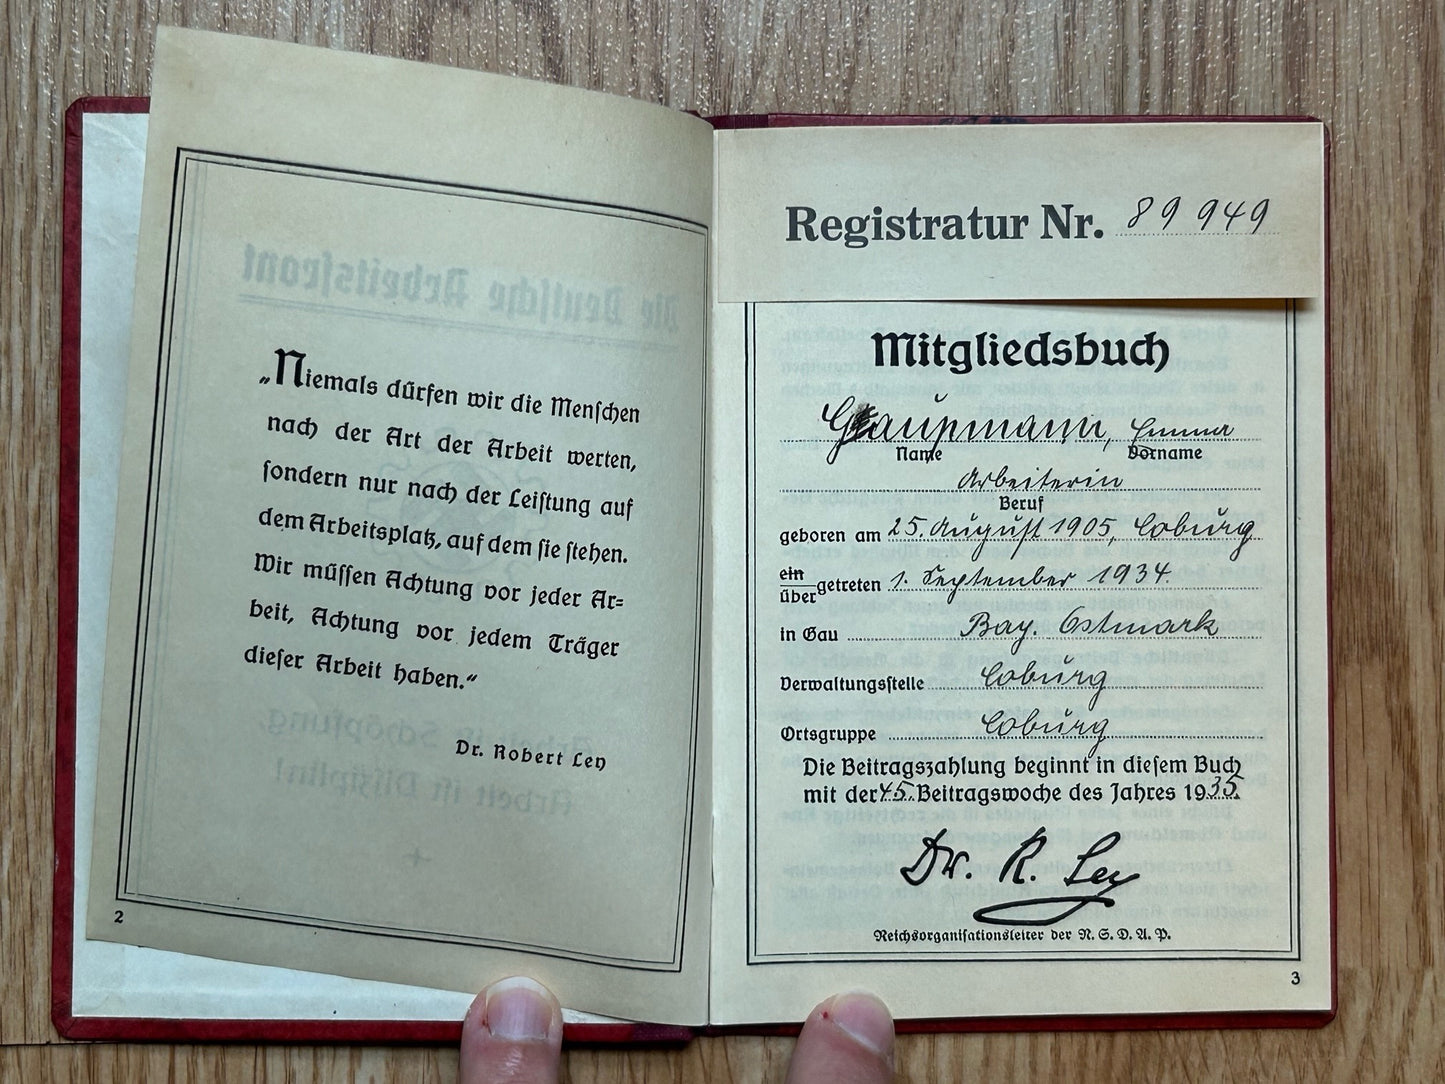 „Niemals dürfen wir die Menschen
nach der Art der Arbeit werten,
sondern nur nach der Leistung auf
dem Arbeitsplatz, auf dem sie stehen.
Wir müssen Achtung vor jeder Ar=
beit, Achtung vor jedem Träger
dieser Arbeit haben.“
Dr. Robert Ley
2
Registratur Nr. 89 949
Mitgliedsbuch
Emma
Name Vorname
Arbeiterin
Beruf
geboren am 25. August 1905, Coburg
ein
über getreten 1. September 1934.
in Gau Bay. Ostmark
Verwaltungsstelle Coburg
Ortsgruppe Coburg
Die Beitragszahlung beginnt in diesem Buch
mit der 45. Beitragswoche des Jahres 1935.
Dr. R. Ley
Reichsorganisationsleiter der N. S. D. A. P.
3